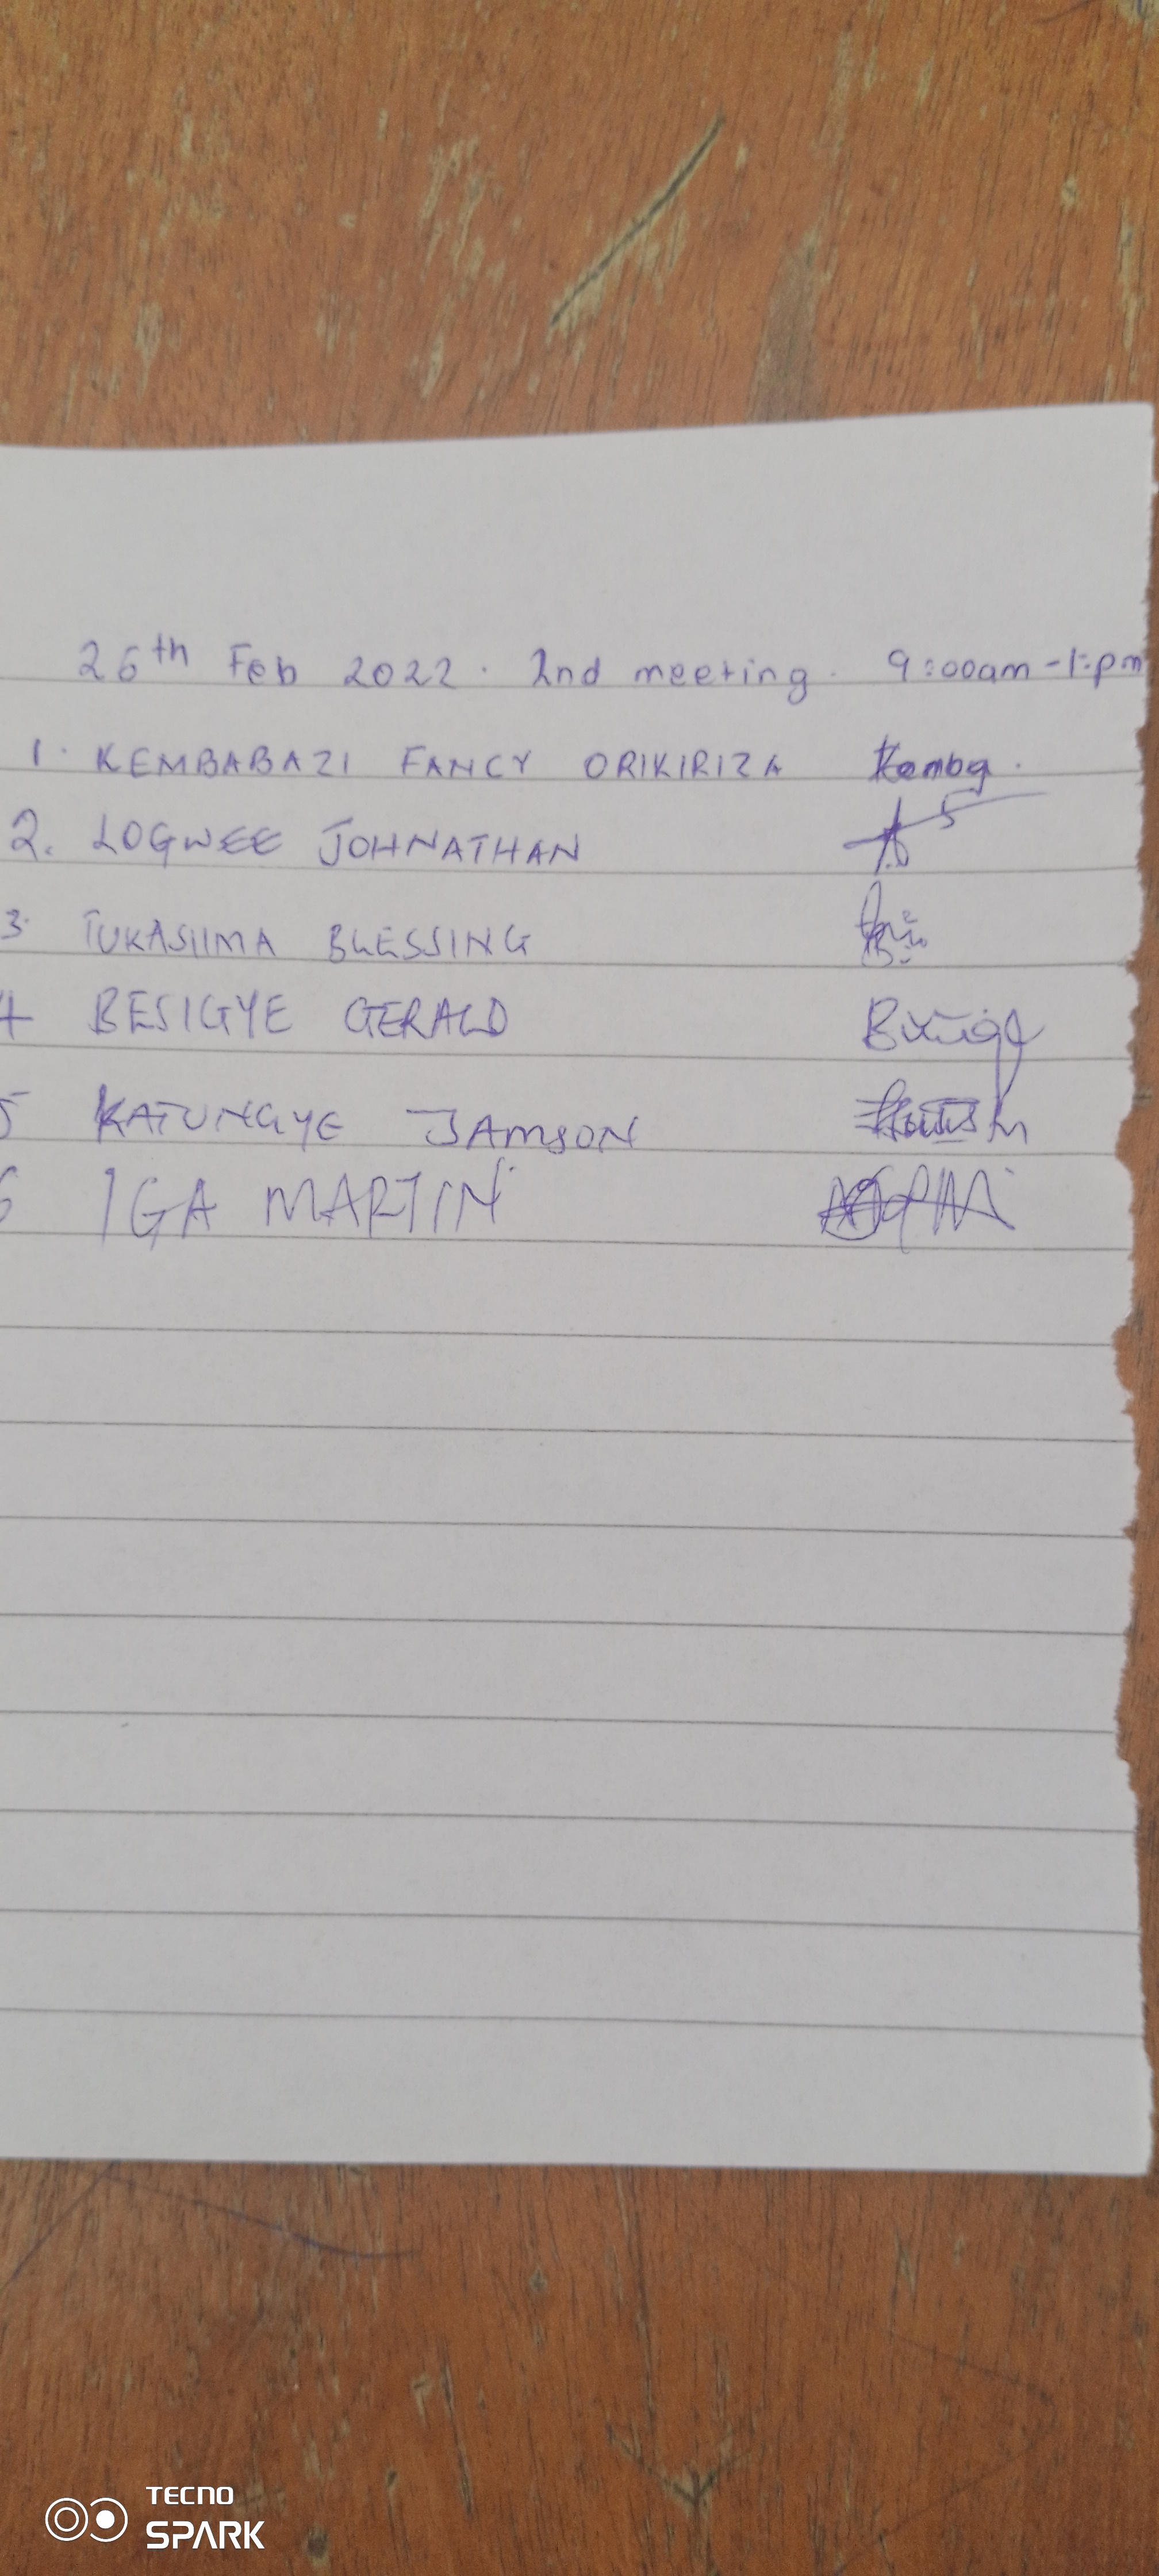 26th Feb 2022. 2nd meeting. 9:00am - 1:pm
1. KEMBABAZI FANCY ORIKIRIZA Kemba.
2. LOGWEE JOHNATHAN
3. TUKASIIMA BLESSING
4 BESIGYE GERALD
5 KATUNGYE JAMSON
6 IGA MARTIN
TECNO
SPARK